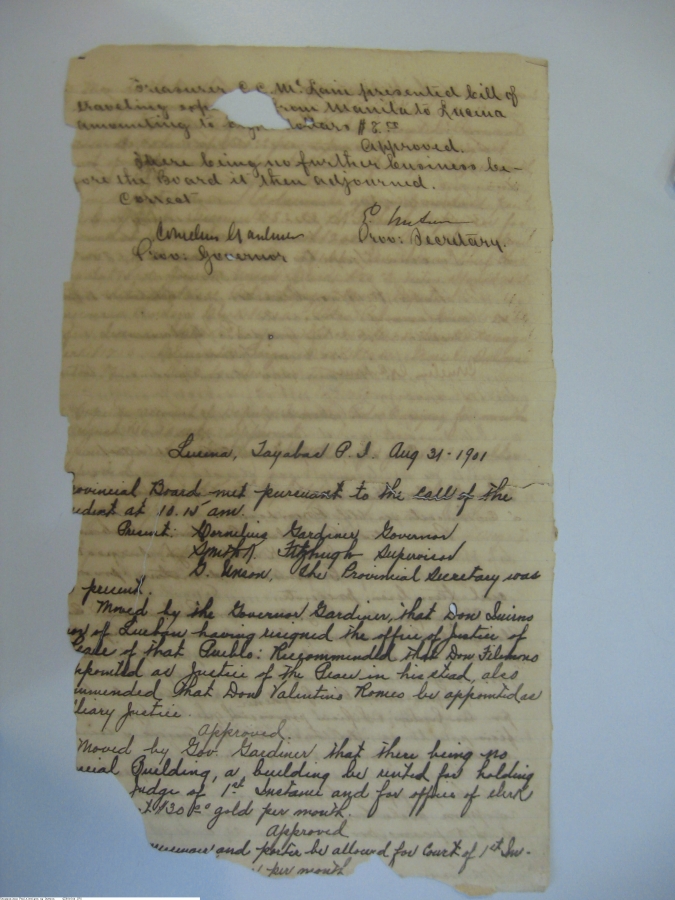 Treasurer C.C. McLain presented bill of
traveling from Manila to Lucena
amounting to dollars $8.00
Approved.
There being no further business be-
ore the Board it then adjourned.
Correct
Cornelius Gardener
Prov: Secretary.
Prov: Governor
Lucena, Tayabas P.I. Aug 31-1901
ovincial Board met pursuant to the call of the
ident at 10.15 am.
Present: Cornelius Gardiner Governor
Fitzhugh Supervisor
G. Unson, the Provincial Secretary was
present.
Moved by the Governor Gardiner, that Don
of Lucban having resigned the office of Justice of
eace of that Pueblo: Recommended that Don Filomeno
ppointed as Justice of the Peace in his stead, also
mmended that Don Valentino Romeo be appointed as
liary Justice.
Approved.
Moved by Gov. Gardiner that there being no
cial Building, a building be rented for holding
Judge of 1st Instance and for office of clerk
$30 00 gold per month.
Approved
and porter be allowed for Court of 1st In-
per month